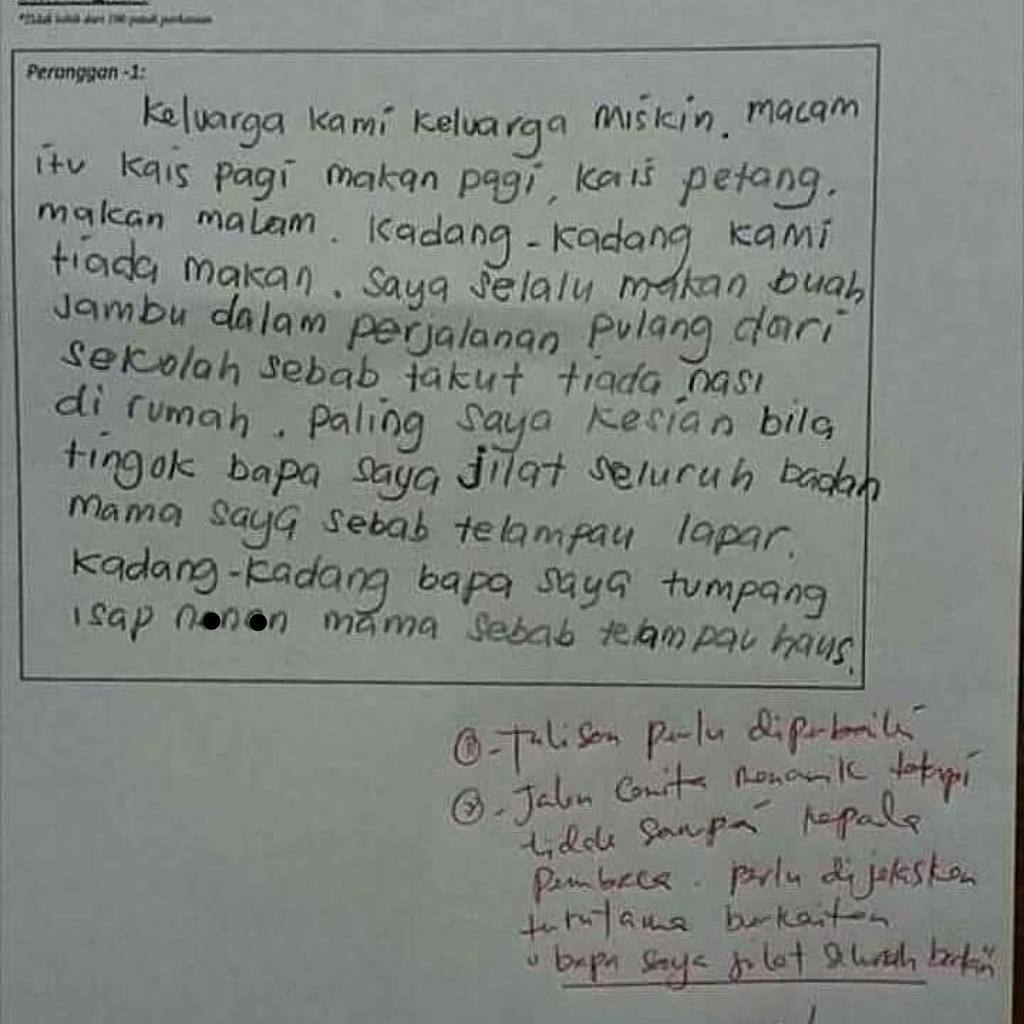 *Tidak lebih dari 100 patah perkataan
Peranggan -1:
Keluarga kami keluarga miskin. macam
itu kais pagi makan pagi, kais petang.
makan malam. Kadang-kadang kami
tiada makan. saya selalu makan buah
jambu dalam perjalanan pulang dari
sekolah sebab takut tiada nasi
di rumah. paling saya kesian bila
tingok bapa saya jilat seluruh badan
mama saya sebab telampau lapar.
Kadang-kadang bapa saya tumpang
isap n●n●n mama sebab telampau haus.
① - Tulisan perlu diperbaiki
② - Jalan cerita menarik tetapi
tidak sampai kepala
pembaca. perlu dijelaskan
terutama berkaitan
"bapa saya jilat seluruh badan"